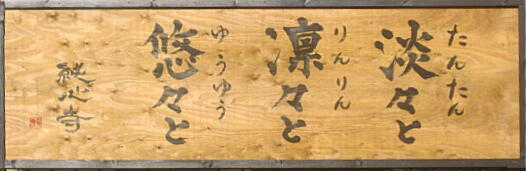 淡々と
たんたん
凛々と
りんりん
悠々と
ゆうゆう